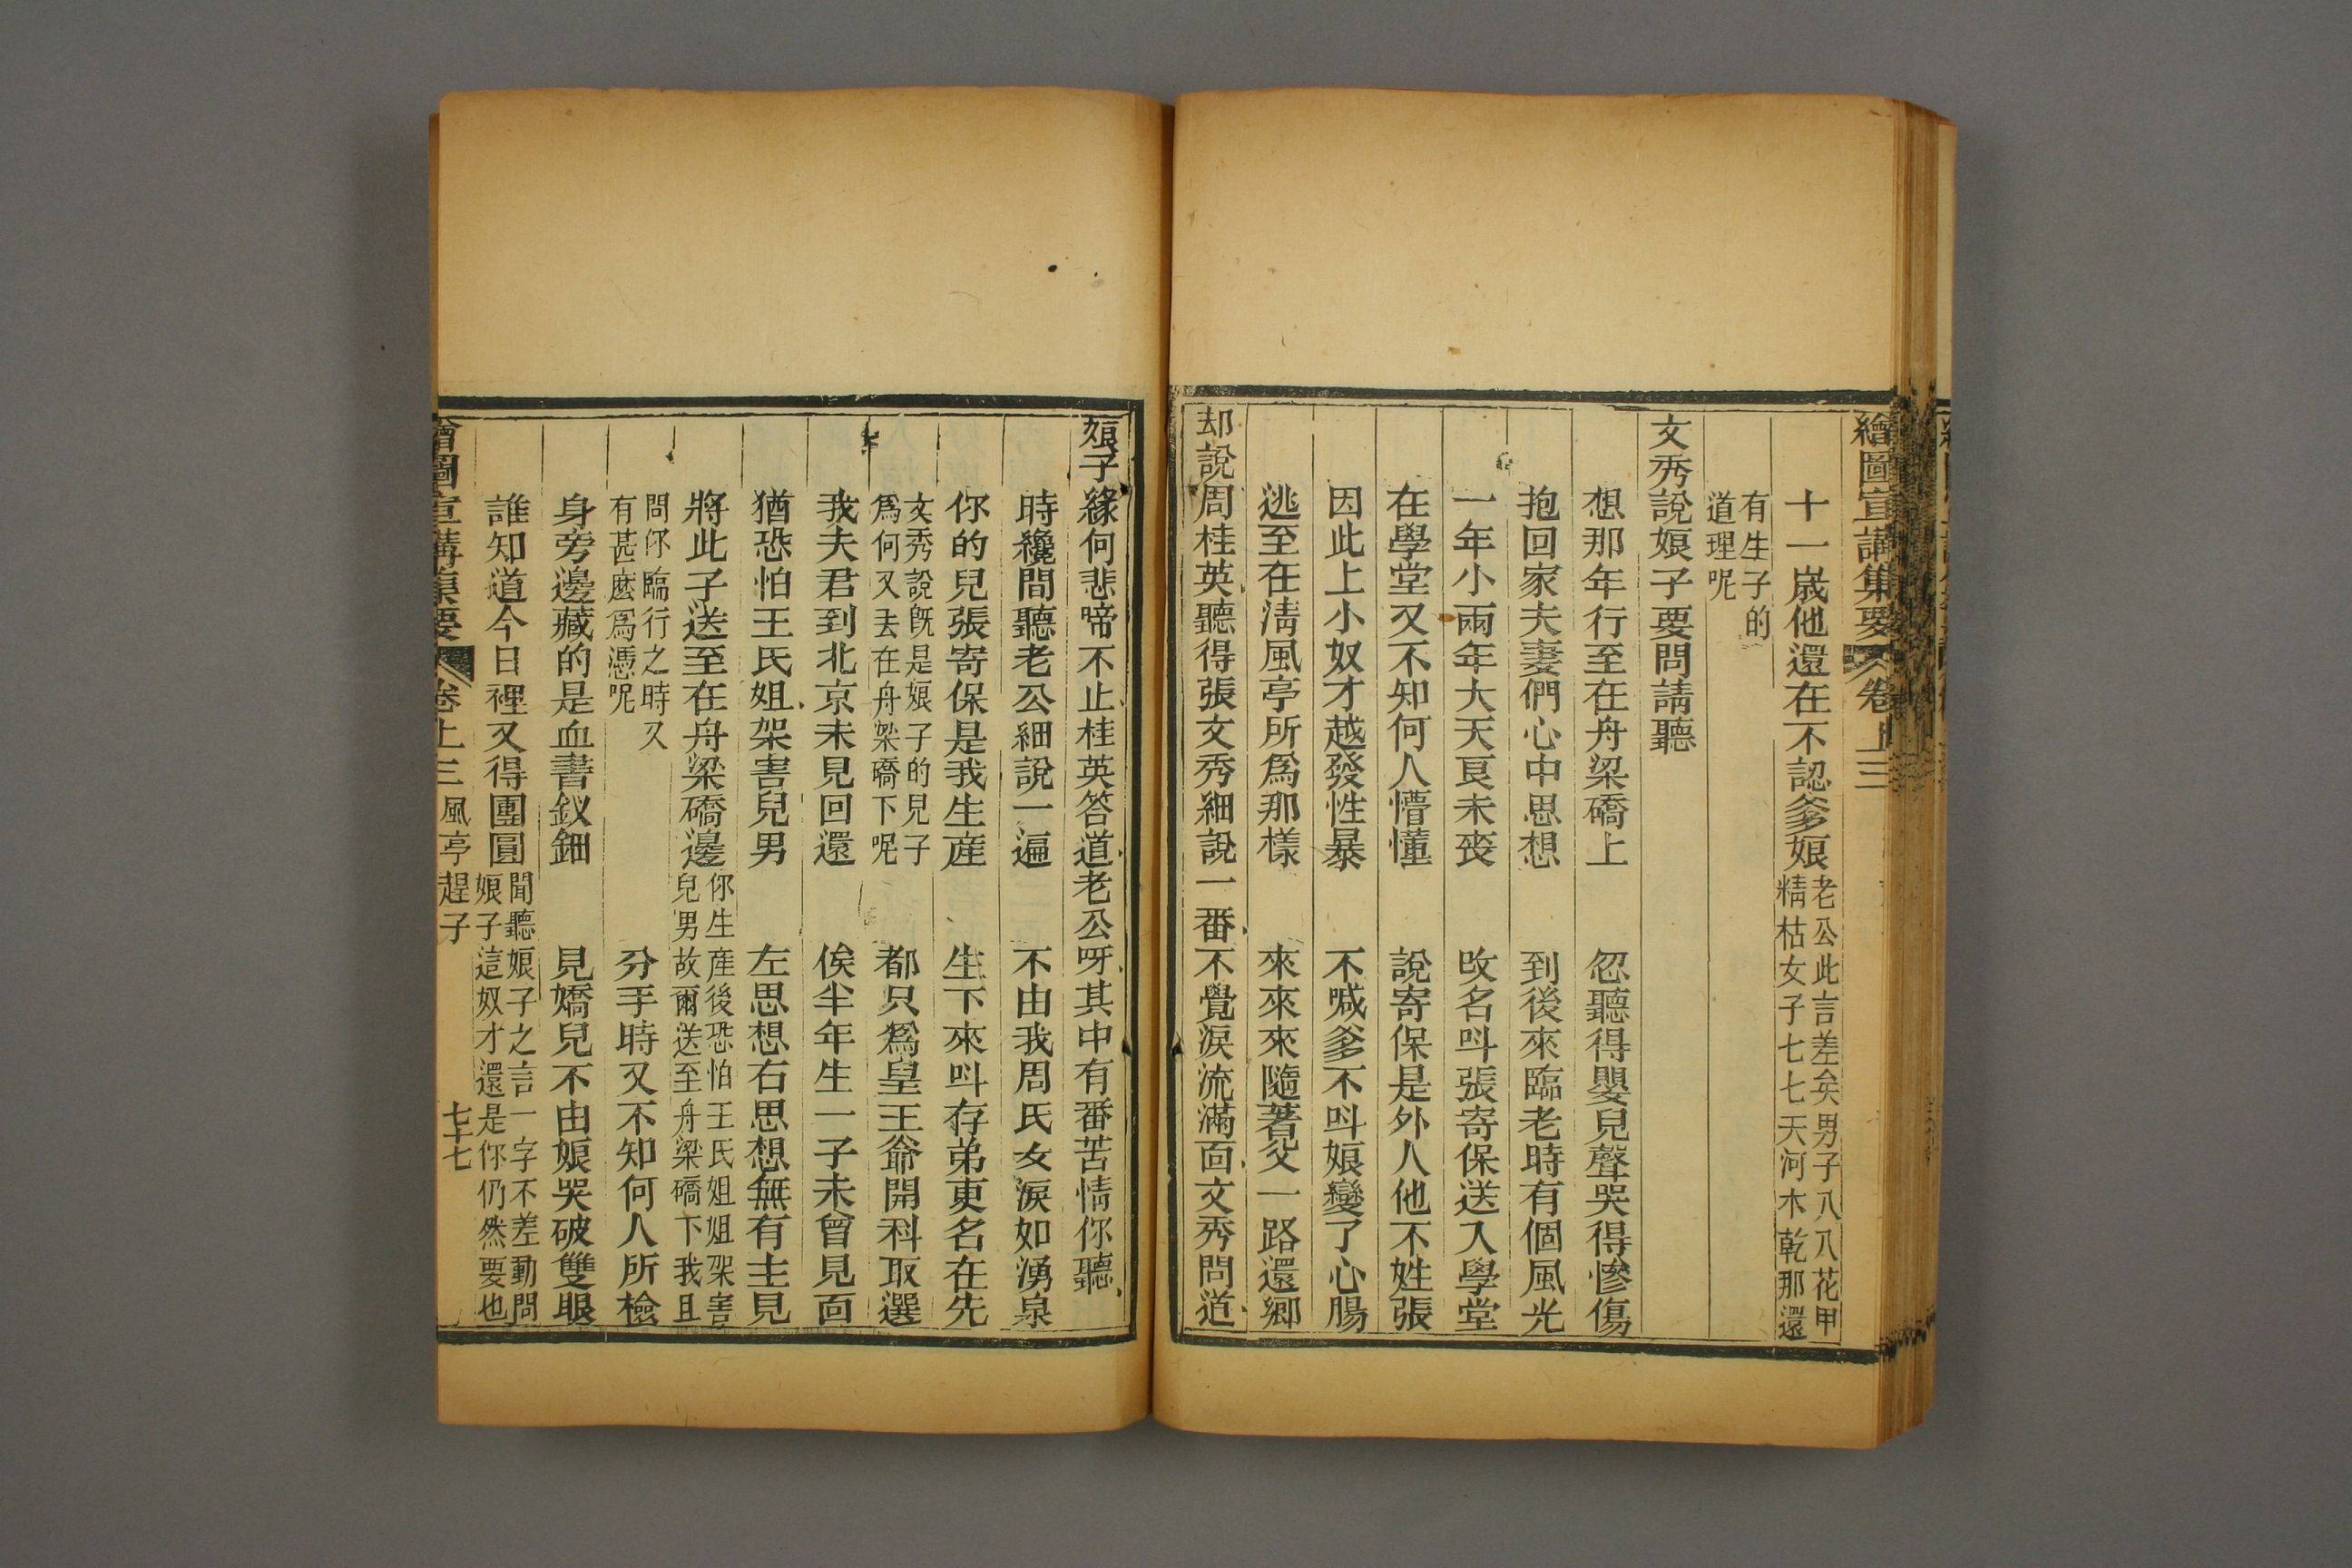 繪圖宣講集要 卷上三
十一歲他還在不認爹娘 老公此言差矣男子八八花甲
精枯女子七七天河水乾那還
有生子的
道理呢
文秀說娘子要問請聽
想那年行至在舟梁礄上 忽聽得嬰兒聲哭得慘傷
抱回家夫妻們心中思想 到後來臨老時有個風光
一年小兩年大天良未喪 改名呌張寄保送入學堂
在學堂又不知何人懵懂 說寄保是外人他不姓張
因此上小奴才越發性暴 不喊爹不呌娘變了心腸
逃至在淸風亭所爲那樣 來來來隨著父一路還鄉
却說周桂英聽得張文秀細說一番不覺淚流滿面文秀問道
娘子緣何悲啼不止桂英答道老公呀其中有番苦情你聽
時纔間聽老公細說一遍 不由我周氏女淚如湧泉
你的兒張寄保是我生産 生下來呌存弟更名在先
文秀說旣是娘子的兒子
爲何又丢在舟梁礄下呢 都只爲皇王爺開科取選
我夫君到北京未見回還 俟半年生一子未曾見面
猶恐怕王氏姐架害兒男 左思想右思想無有主見
將此子送至在舟梁礄邊 你生産後恐怕王氏姐姐架害
兒男故爾送至舟梁礄下我且
問你臨行之時又
有甚麼爲憑呢 分手時又不知何人所檢
身旁邊藏的是血書釵鈿 見嬌兒不由娘哭破雙眼
誰知道今日裡又得團圓 聞聽娘子之言一字不差動問
娘子這奴才還是你仍然要也
繪圖宣講集要 卷上三 風亭趕子 七十七